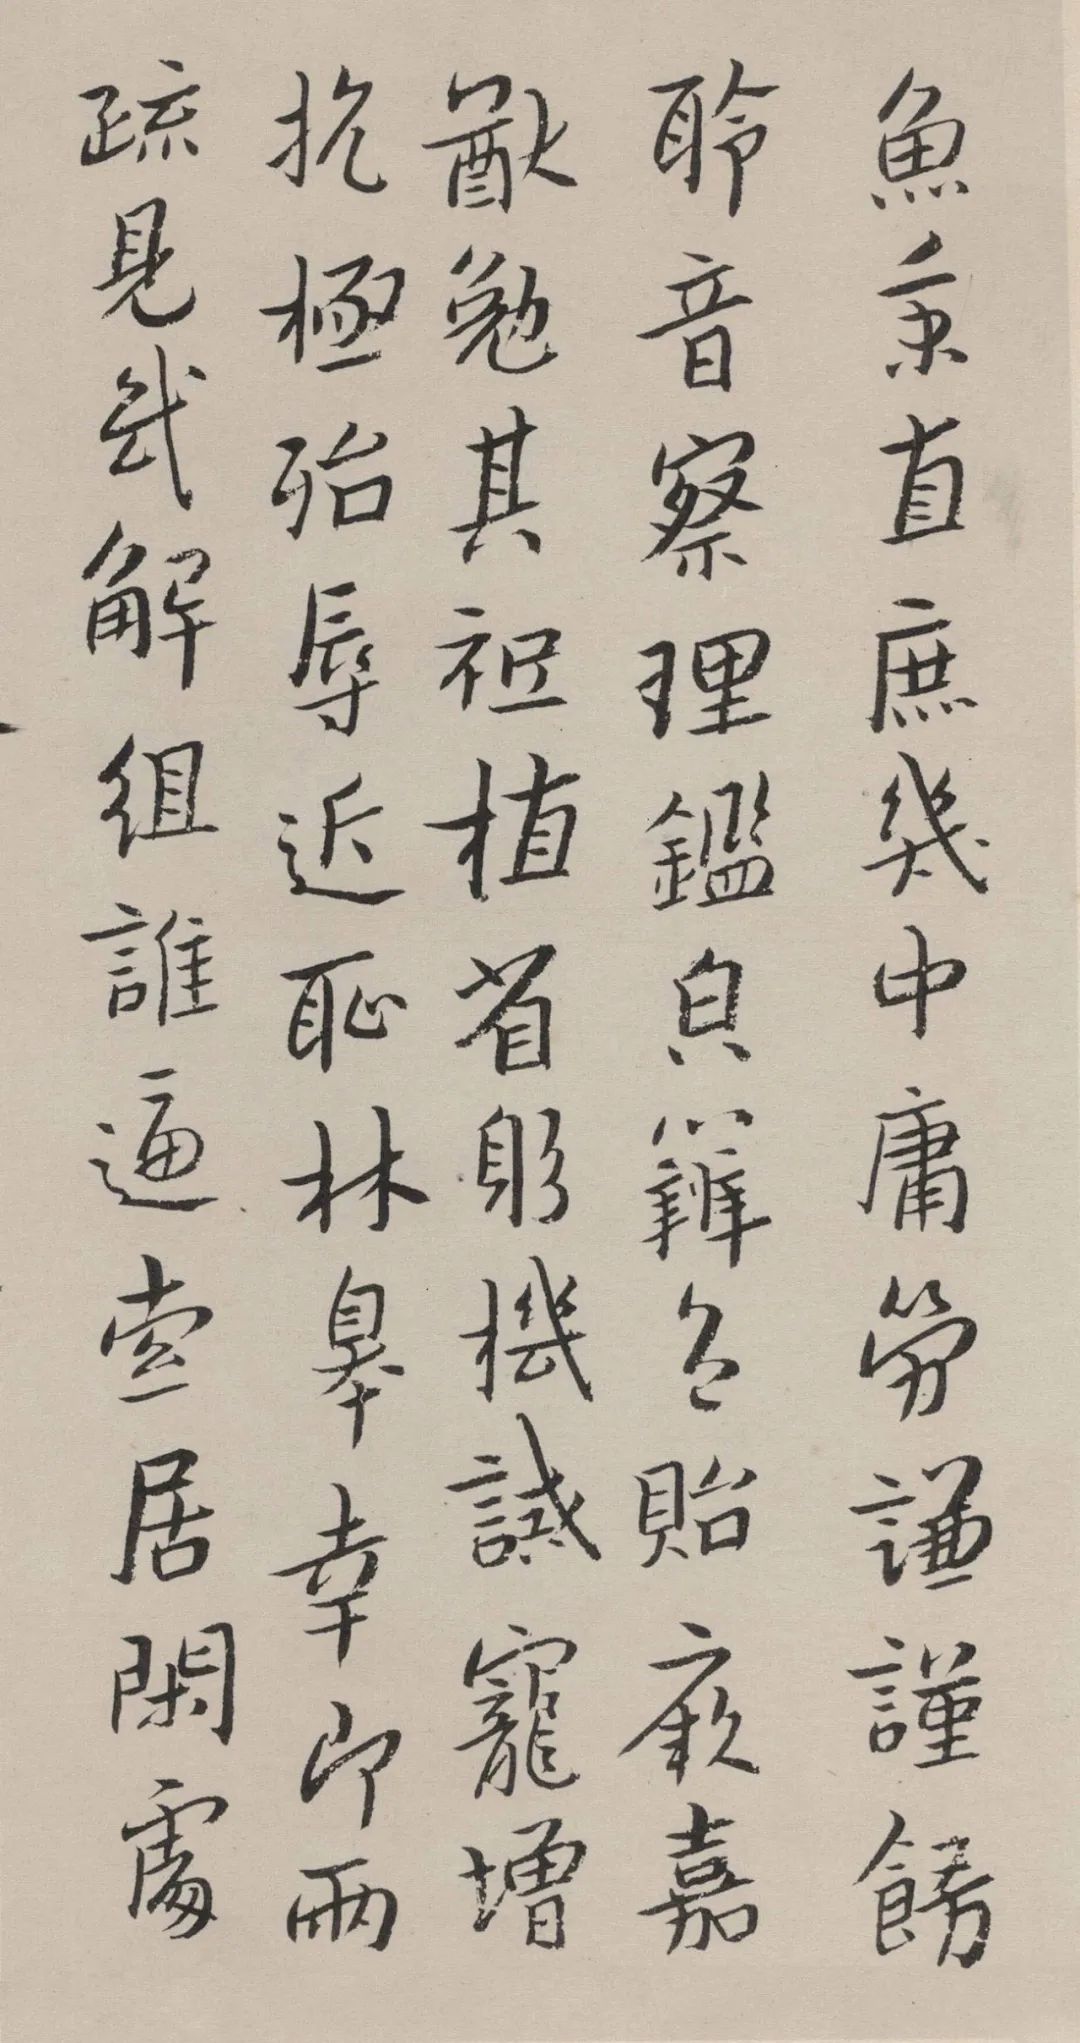 魚秉直庶幾中庸勞謙謹勅
聆音察理鑑皃辯色貽厥嘉
猷勉其祗植省躬機誡寵增
抗極殆辱近耻林皋幸即兩
疏見機解組誰逼索居閑處